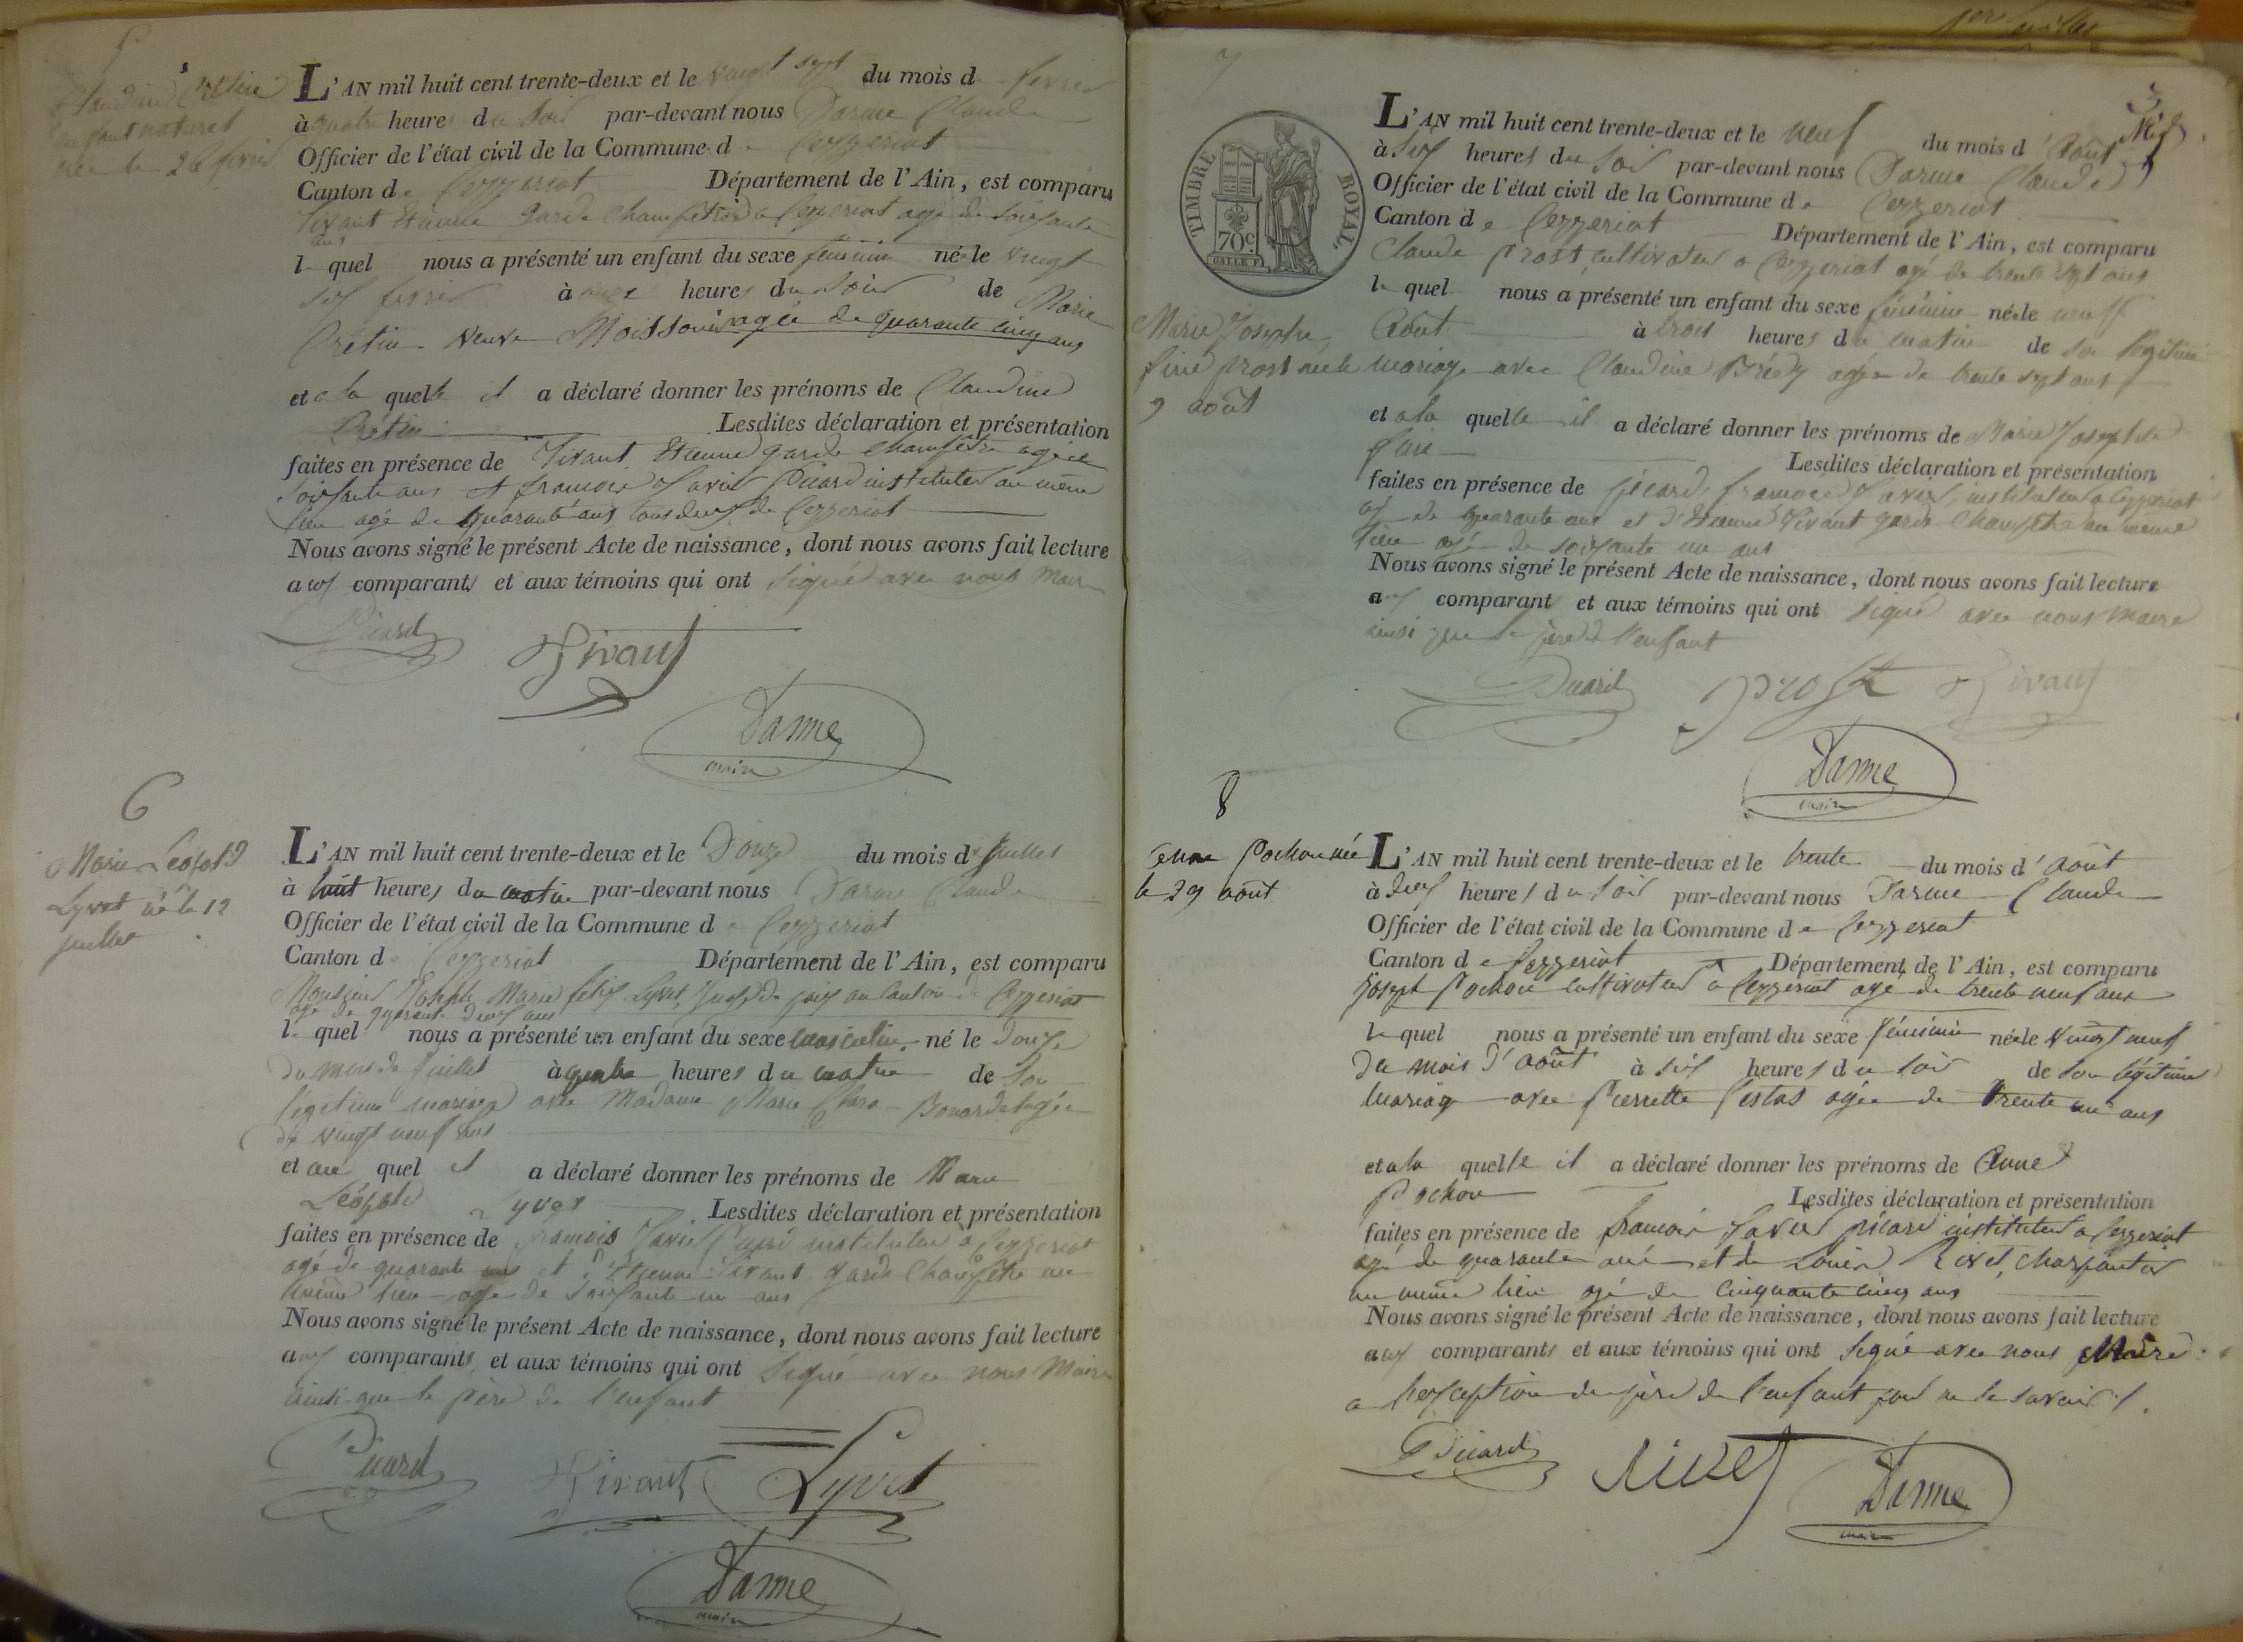 5
Claudine Crétin
enfant naturel
née le 26 fevrier
L'AN mil huit cent trente-deux et le vingt sept du mois de fevrier
à quatre heures du soir par-devant nous Darme Claude
Officier de l'état civil de la Commune de Ceyzeriat
Canton de Ceyzeriat Département de l'Ain, est comparu
Vivant Etienne Garde Champêtre à Ceyzeriat agé de soixante
ans
lequel nous a présenté un enfant du sexe feminin née le vingt
six fevrier à heures du soir de Marie
Crétin veuve Moissonnier agée de quarante cinq ans
et a la quelle il a déclaré donner les prénoms de Claudine
Crétin Lesdites déclaration et présentation
faites en présence de Vivant Etienne garde champêtre agé de
soixante ans et francois Xavier Picard instituteur au même
lieu agé de quarante ans tous deux de Ceyzeriat
Nous avons signé le présent Acte de naissance, dont nous avons fait lecture
aux comparants et aux témoins qui ont signé avec nous Maire
Picard
Vivant
Darme
maire
6
Marie Léopold
Lyvet né le 12
juillet
L'AN mil huit cent trente-deux et le Douze du mois de juillet
à huit heures du matin par-devant nous Darme Claude
Officier de l'état civil de la Commune de Ceyzeriat
Canton de Ceyzeriat Département de l'Ain, est comparu
Monsieur Joseph Marie felix Lyvet Juge de paix au Canton de Ceyzeriat
agé de quarante deux ans
lequel nous a présenté un enfant du sexe masculin né le douze
du mois de Juillet à quatre heures du matin de son
légitime mariage avec Madame Marie Clara agée
de vingt neuf ans
et au quel il a déclaré donner les prénoms de Marie
Léopold Lyvet Lesdites déclaration et présentation
faites en présence de francois Xavier instituteur à Ceyzeriat
agé de quarante ans et d'Etienne Vivant garde Champêtre au
même lieu agé de soixante un ans
Nous avons signé le présent Acte de naissance, dont nous avons fait lecture
aux comparants et aux témoins qui ont signé avec nous Maire
ainsi que le père de l'enfant
Picard
Vivant
Lyvet
Darme
maire
7
3
TIMBRE ROYAL
70c
L'AN mil huit cent trente-deux et le neuf du mois d'Août
à six heures du soir par-devant nous Darme Claude
Officier de l'état civil de la Commune de Ceyzeriat
Canton de Ceyzeriat Département de l'Ain, est comparu
Claude Prost cultivateur a Ceyzeriat agé de trente sept ans
lequel nous a présenté un enfant du sexe féminin née le neuf
Marie Joseph
fine prost née le
9 août
Août à trois heures du matin de son légitime
mariage avec Claudine agée de trente sept ans
et a la quelle il a déclaré donner les prénoms de Marie Joseph
fine Lesdites déclaration et présentation
faites en présence de picard francois Xavier instituteur a Ceyzeriat
agé de quarante ans et d'Etienne Vivant garde Champêtre au même
lieu agé de soixante un ans
Nous avons signé le présent Acte de naissance, dont nous avons fait lecture
aux comparants et aux témoins qui ont signé avec nous maire
ainsi que le père de l'enfant
Picard
prost
Vivant
Darme
maire
8
Anne Pochon née
le 29 août
L'AN mil huit cent trente-deux et le trente du mois d'Août
à deux heures du soir par-devant nous Darme Claude
Officier de l'état civil de la Commune de Ceyzeriat
Canton de Ceyzeriat Département de l'Ain, est comparu
Joseph Pochon cultivateur à Ceyzeriat agé de trente neuf ans
lequel nous a présenté un enfant du sexe féminin née le vingt neuf
du mois d'août à six heures du soir de son légitime
mariage avec Pierrette agée de trente un ans
et a la quelle il a déclaré donner les prénoms de Anne
Pochon Lesdites déclaration et présentation
faites en présence de francois Xavier picard instituteur a Ceyzeriat
agé de quarante ans et de Louis Rivet, charpentier
au même lieu agé de cinquante cinq ans
Nous avons signé le présent Acte de naissance, dont nous avons fait lecture
aux comparants et aux témoins qui ont signé avec nous Maire
a l'exception du père de l'enfant pour ne le savoir
Picard
Rivet
Darme
maire